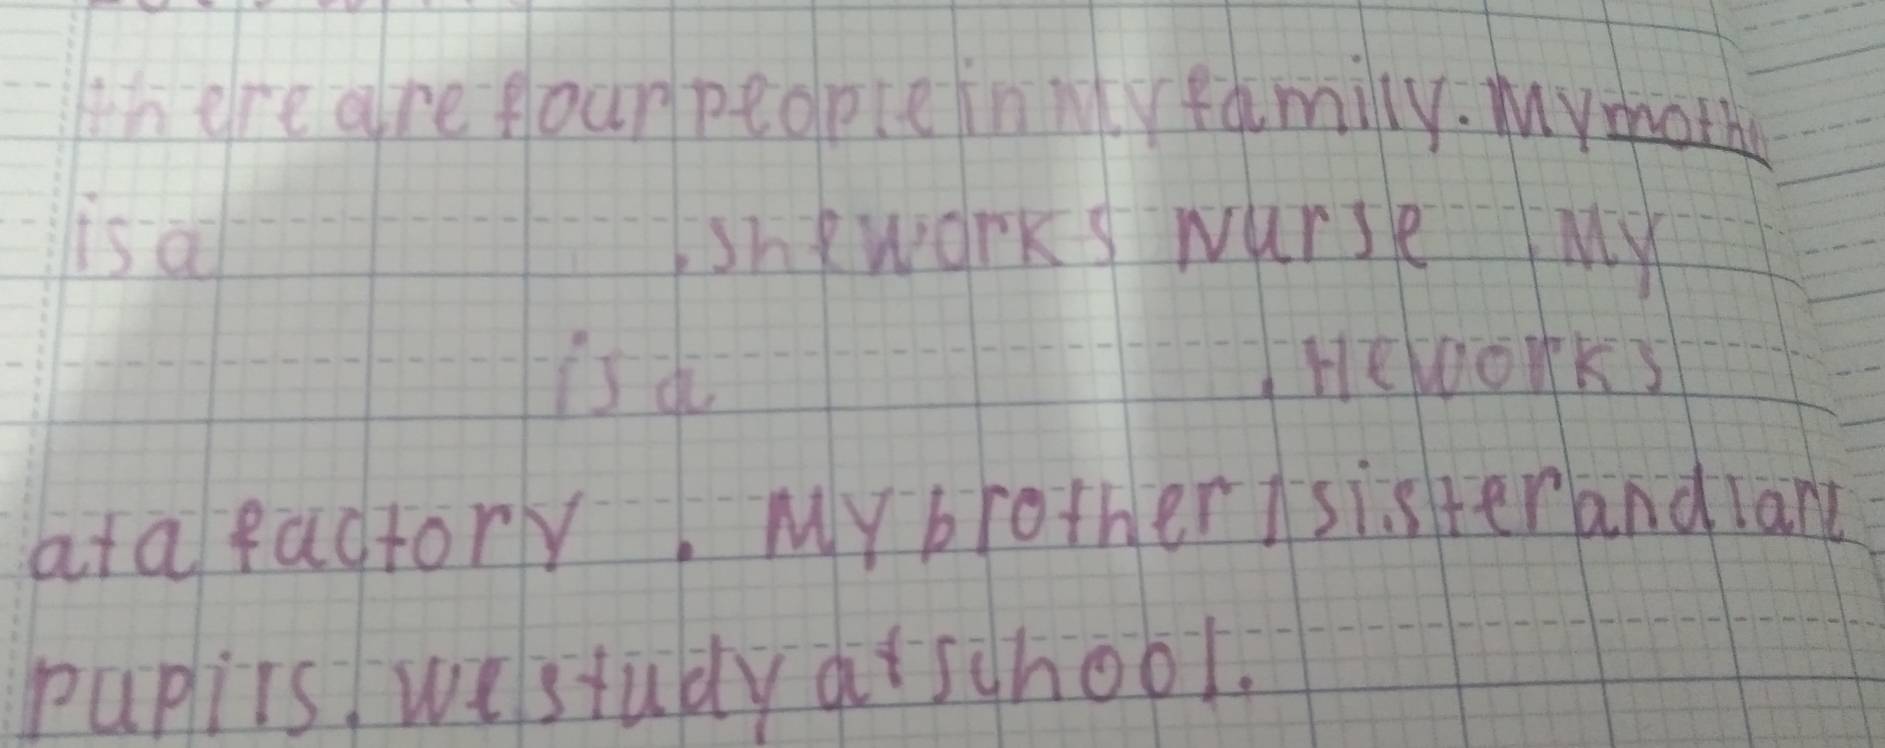 there are four people in my family. My moth
is a . she works Nurse My
is a . He works
at a factory . My brother / sister and I am
pupils. we study at school.